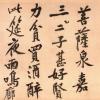 菩薩泉嘉
二三子甚好賢
力貧買酒醉
此筵夜雨鳴廊